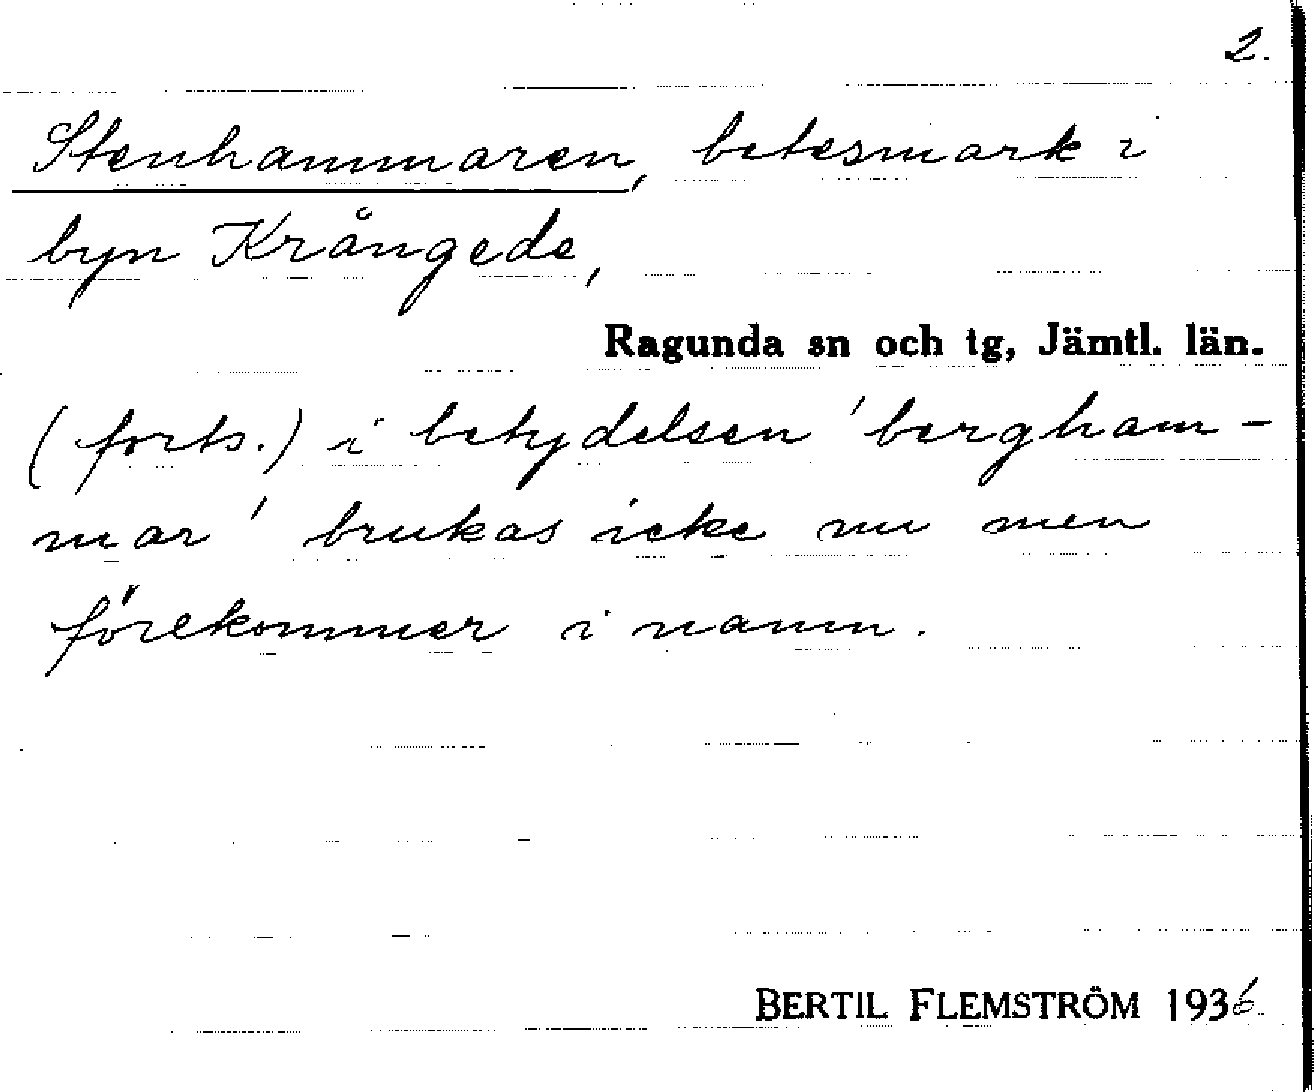 2.
Stenhammaren, betesmark i
byn Krångede,
Ragunda sn och tg, Jämtl. län.
(forts.) i betydelsen 'bergham-
mar' brukas icke nu men
förekommer i namn.
BERTIL FLEMSTRÖM 1936.